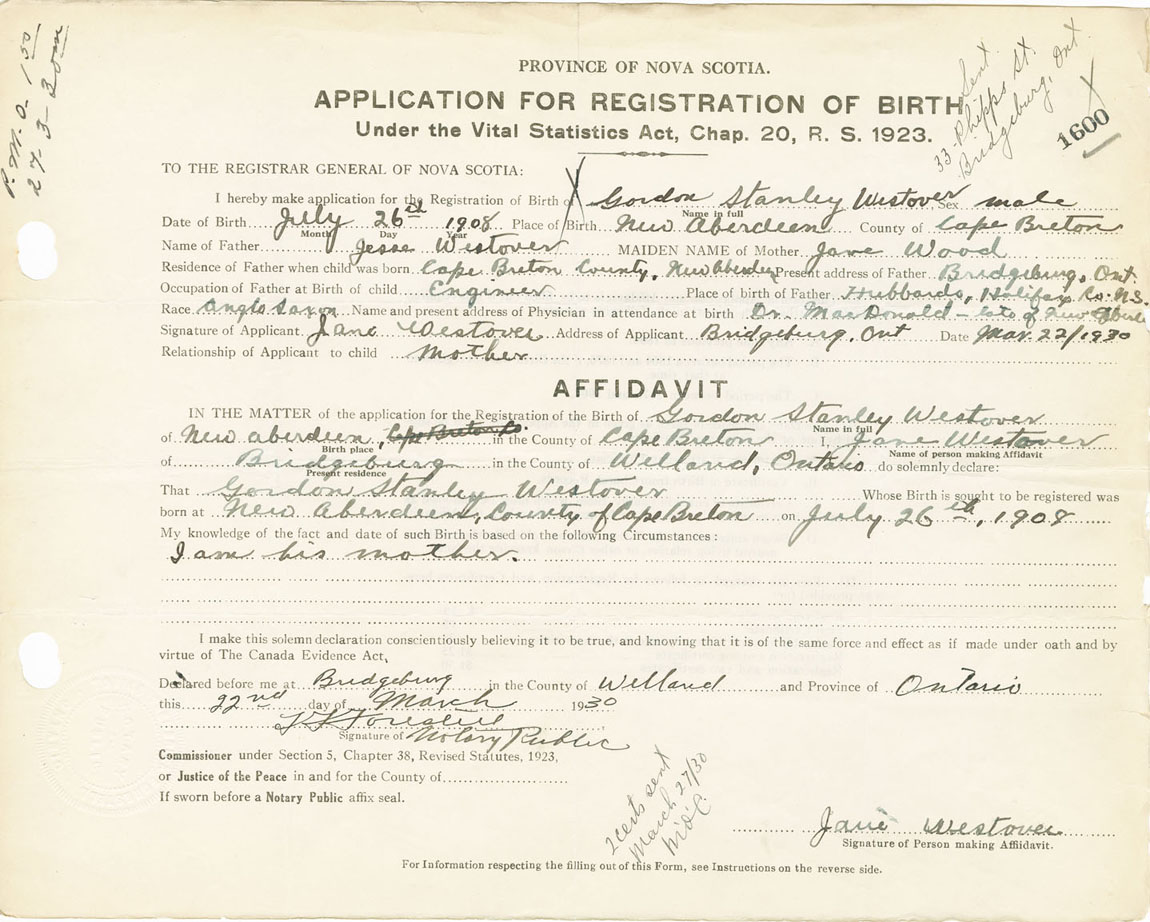 P.M.O. 1 50
27-3-30 m
Sent
33 Phipps St.
Bridgeburg, Ont.
1600
PROVINCE OF NOVA SCOTIA.
APPLICATION FOR REGISTRATION OF BIRTH
Under the Vital Statistics Act, Chap. 20, R. S. 1923.
TO THE REGISTRAR GENERAL OF NOVA SCOTIA:
I hereby make application for the Registration of Birth of Gordon Stanley Westover Sex male
Name in full
Date of Birth July 26th 1908 Place of Birth New Aberdeen County of Cape Breton
Month Day Year
Name of Father Jesse Westover MAIDEN NAME of Mother Jane Wood
Residence of Father when child was born Cape Breton County, New Aberdeen Present address of Father Bridgeburg, Ont.
Occupation of Father at Birth of child Engineer Place of birth of Father Hubbards, Halifax Co. N.S.
Race Anglo Saxon Name and present address of Physician in attendance at birth Dr. MacDonald - late of New Aberd
Signature of Applicant Jane Westover Address of Applicant Bridgeburg, Ont Date Mar. 22/1930
Relationship of Applicant to child Mother
AFFIDAVIT
IN THE MATTER of the application for the Registration of the Birth of Gordon Stanley Westover
Name in full
of New aberdeen, Cape Breton Co. in the County of Cape Breton I, Jane Westover
Birth place Name of person making Affidavit
of Bridgeburg in the County of Welland, Ontario do solemnly declare:
Present residence
That Gordon Stanley Westover Whose Birth is sought to be registered was
born at New Aberdeen, County of Cape Breton on July 26th, 1908
My knowledge of the fact and date of such Birth is based on the following Circumstances:
I am his mother.
I make this solemn declaration conscientiously believing it to be true, and knowing that it is of the same force and effect as if made under oath and by
virtue of The Canada Evidence Act,
Declared before me at Bridgeburg in the County of Welland and Province of Ontario
this 22nd day of March 1930
Signature of Notary Public
Commissioner under Section 5, Chapter 38, Revised Statutes, 1923,
or Justice of the Peace in and for the County of
If sworn before a Notary Public affix seal.
2 certs sent
March 27/30
Jane Westover
Signature of Person making Affidavit.
For Information respecting the filling out of this Form, see Instructions on the reverse side.